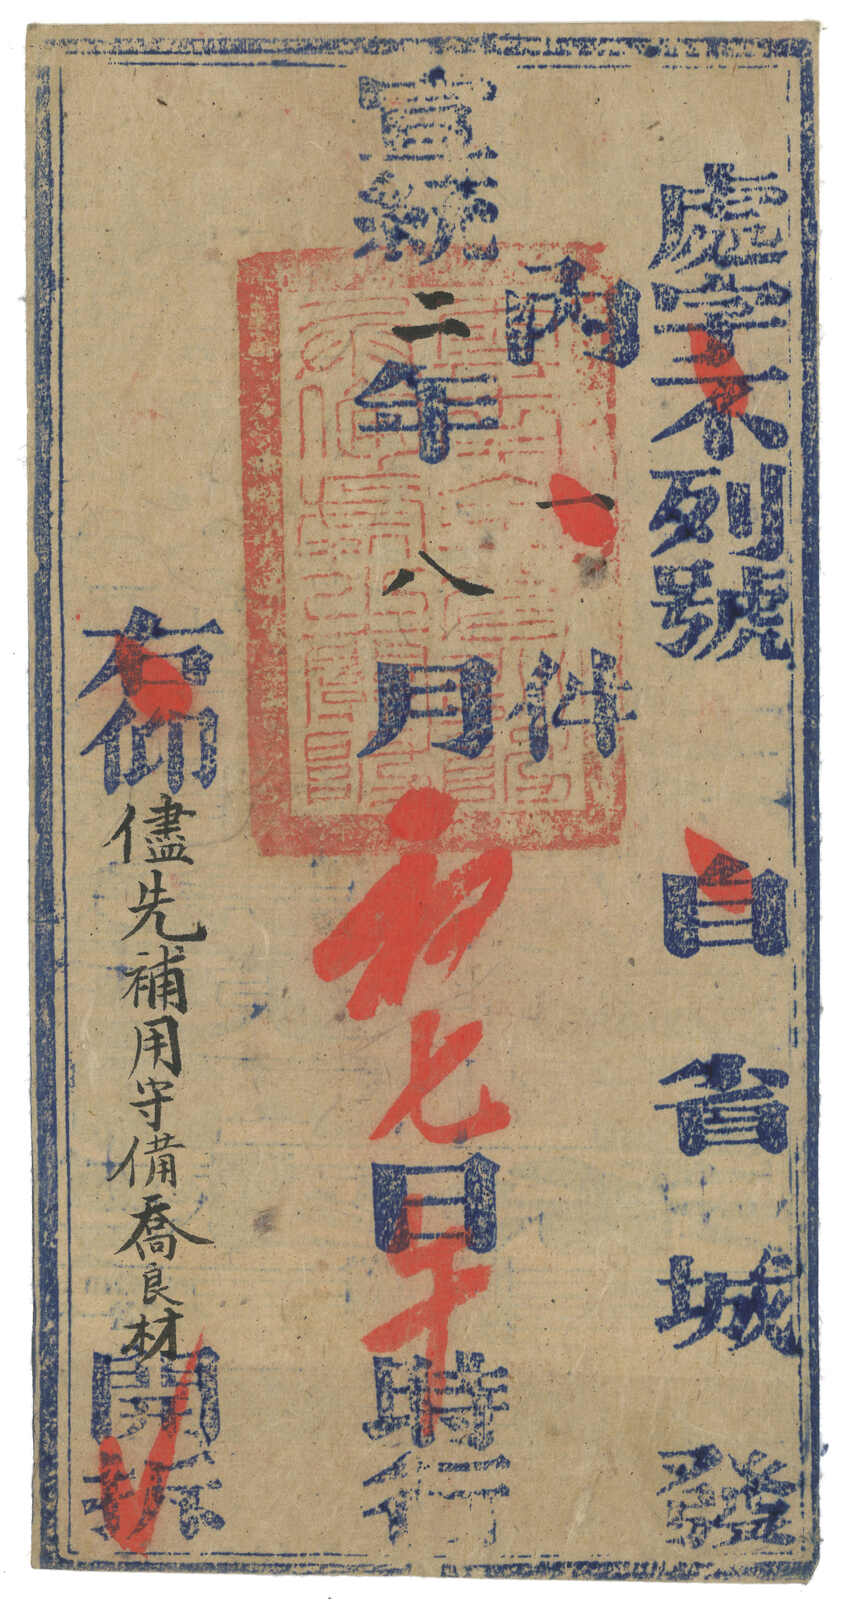 處字不列號 自省城發
內一件
宣統二年八月初七日午時行
右仰儘先補用守備喬良材開拆